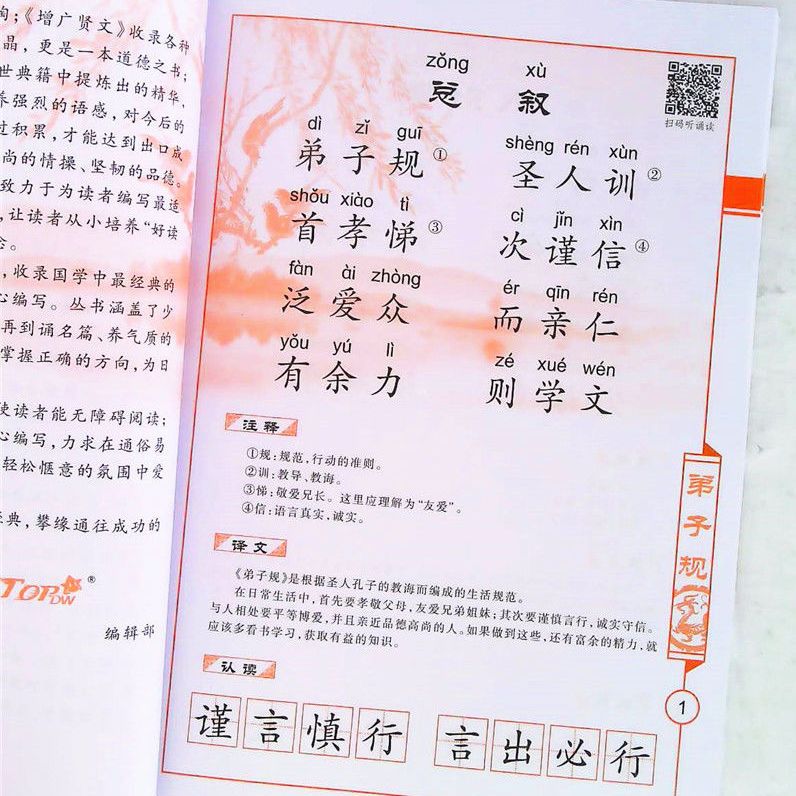 陶；《增广贤文》收录各种
晶，更是一本道德之书；
世典籍中提炼出的精华、
养强烈的语感，对今后的
过积累，才能达到出口成
尚的情操、坚韧的品德。
致力于为读者编写最适
，让读者从小培养“好读
念。
，收录国学中最经典的
心编写。丛书涵盖了少
再到诵名篇、养气质的
掌握正确的方向，为日
使读者能无障碍阅读；
心编写，力求在通俗易
轻松惬意的氛围中爱
经典，攀缘通往成功的
TOP DW ®
编辑部
zǒng xù
总 叙
扫码听诵读
dì zǐ guī shèng rén xùn
弟子规① 圣人训②
shǒu xiào tì cì jǐn xìn
首孝悌③ 次谨信④
fàn ài zhòng ér qīn rén
泛爱众 而亲仁
yǒu yú lì zé xué wén
有余力 则学文
注释
①规：规范，行动的准则。
②训：教导、教诲。
③悌：敬爱兄长。这里应理解为“友爱”。
④信：语言真实，诚实。
译文
《弟子规》是根据圣人孔子的教诲而编成的生活规范。
在日常生活中，首先要孝敬父母，友爱兄弟姐妹；其次要谨慎言行，诚实守信。
与人相处要平等博爱，并且亲近品德高尚的人。如果做到这些，还有富余的精力，就
应该多看书学习，获取有益的知识。
认读
谨言慎行 言出必行
弟子规
1